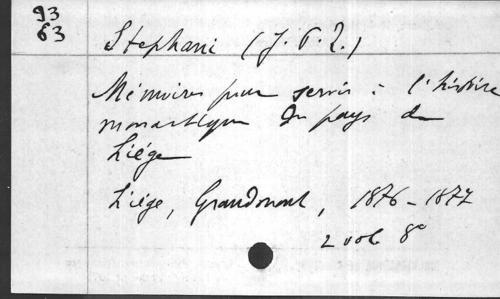 93
63
Stephani (J. P. L.)
Mémoires pour servir à l'histoire
monastique du pays de
Liége
Liége, Grandmont, 1876-1877
2 vol 8°